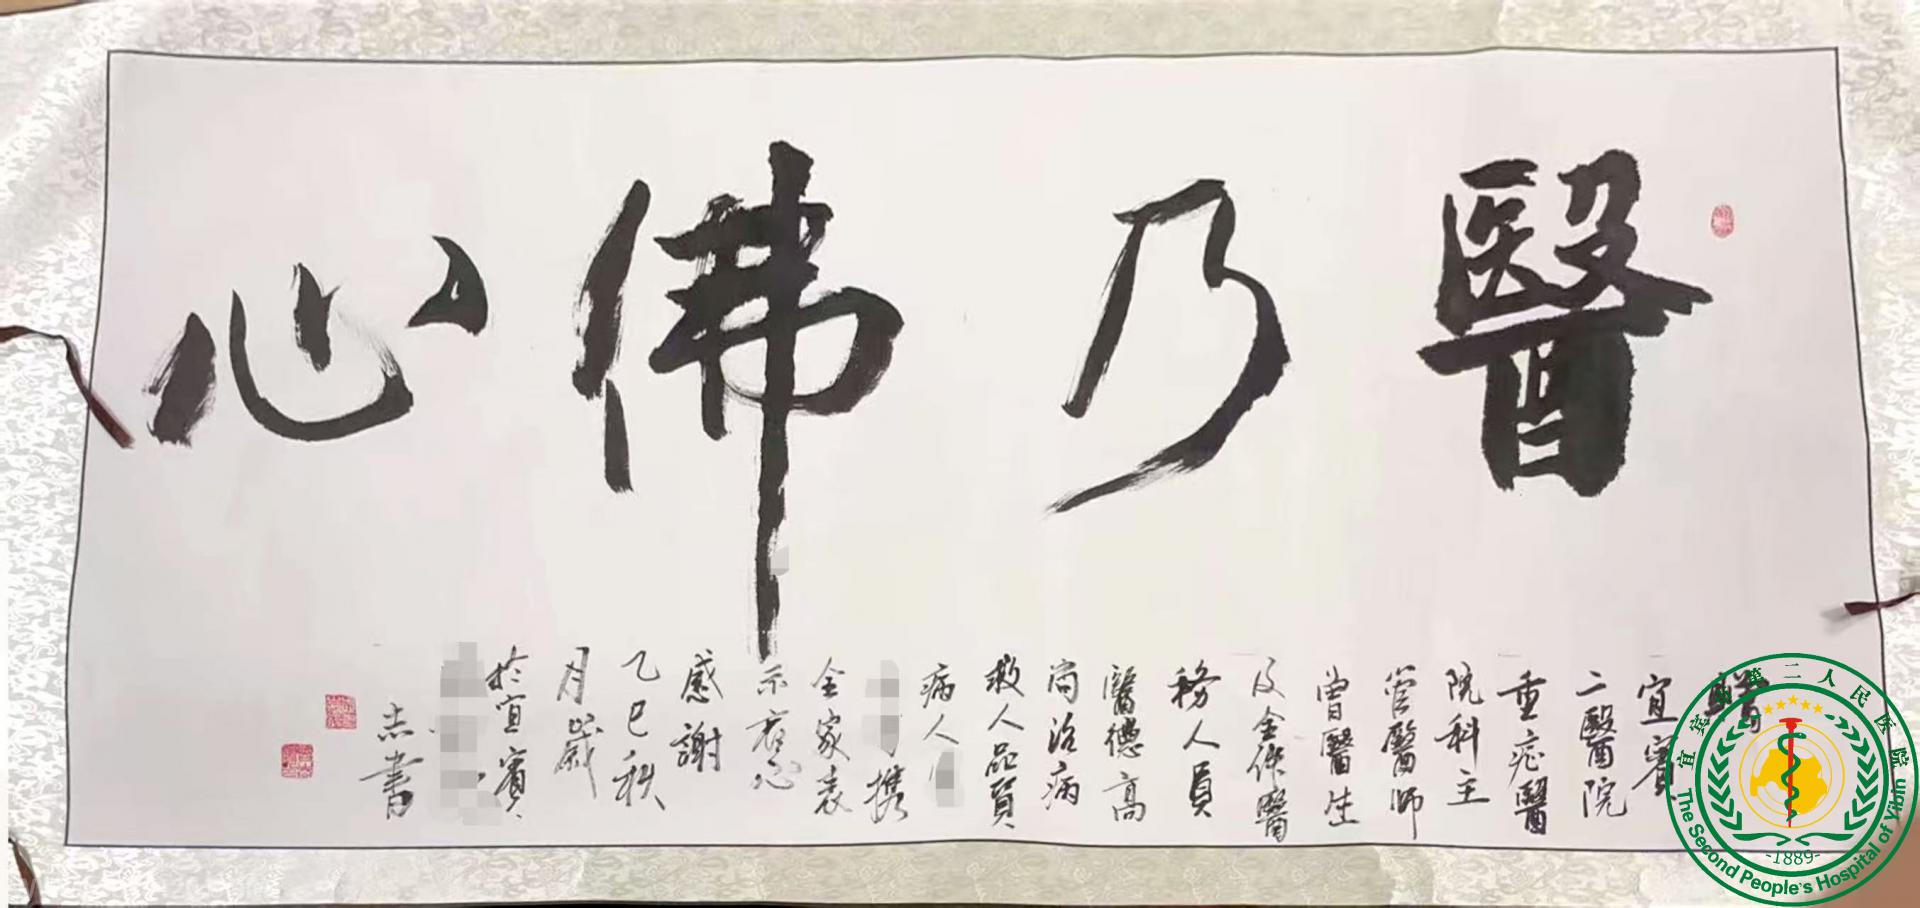 醫乃佛心
宜賓
二醫院
重症醫
院科主
管醫師
曾醫生
及全体醫
務人員
醫德高
尚治病
救人品質
病人
携
全家表
示衷心
感謝
乙巳秋
月歲
於宜賓
志書
宜宾市第二人民医院
The Second People's Hospital of Yibin
-1889-